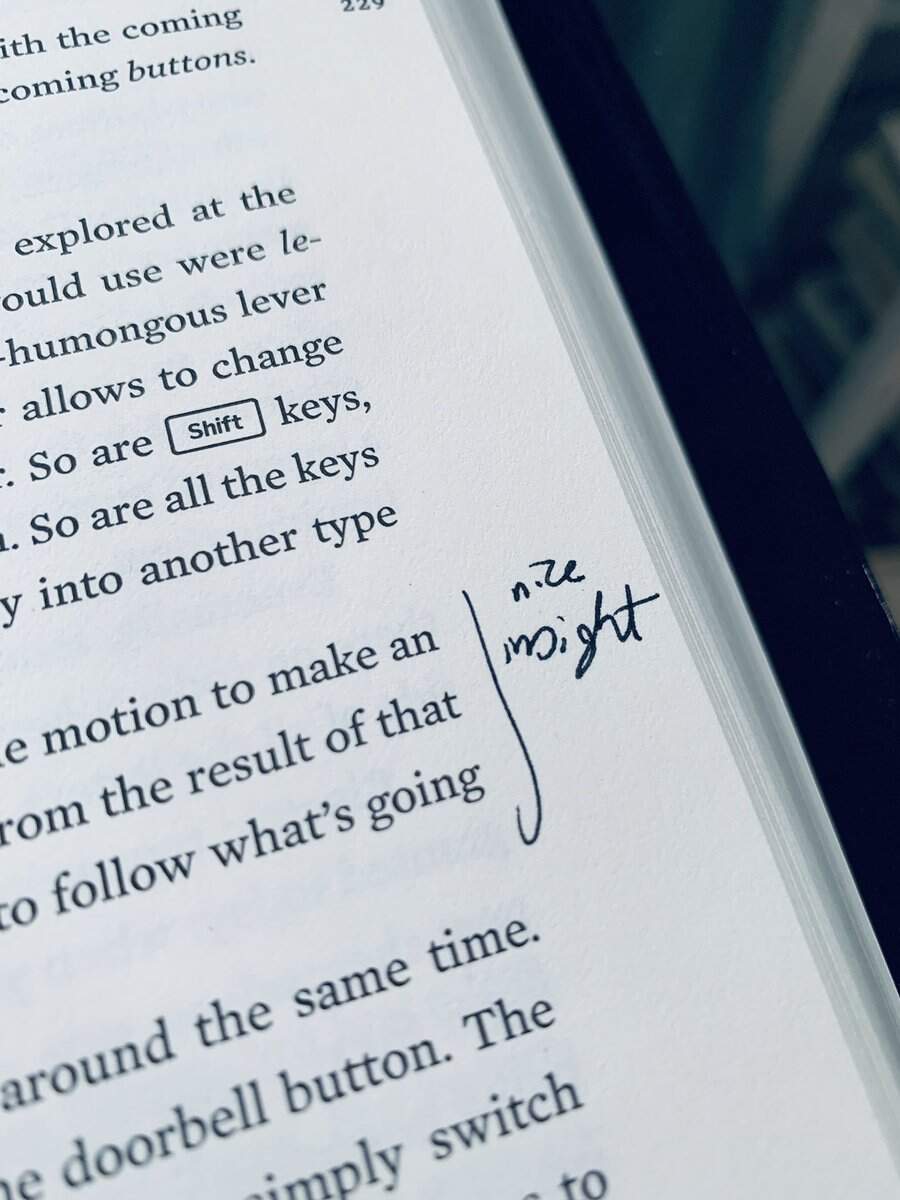 229
ith the coming
coming buttons.
explored at the
ould use were le-
-humongous lever
allows to change
So are Shift keys,
. So are all the keys
y into another type
nice
insight
e motion to make an
rom the result of that
to follow what's going
around the same time.
he doorbell button. The
simply switch
to